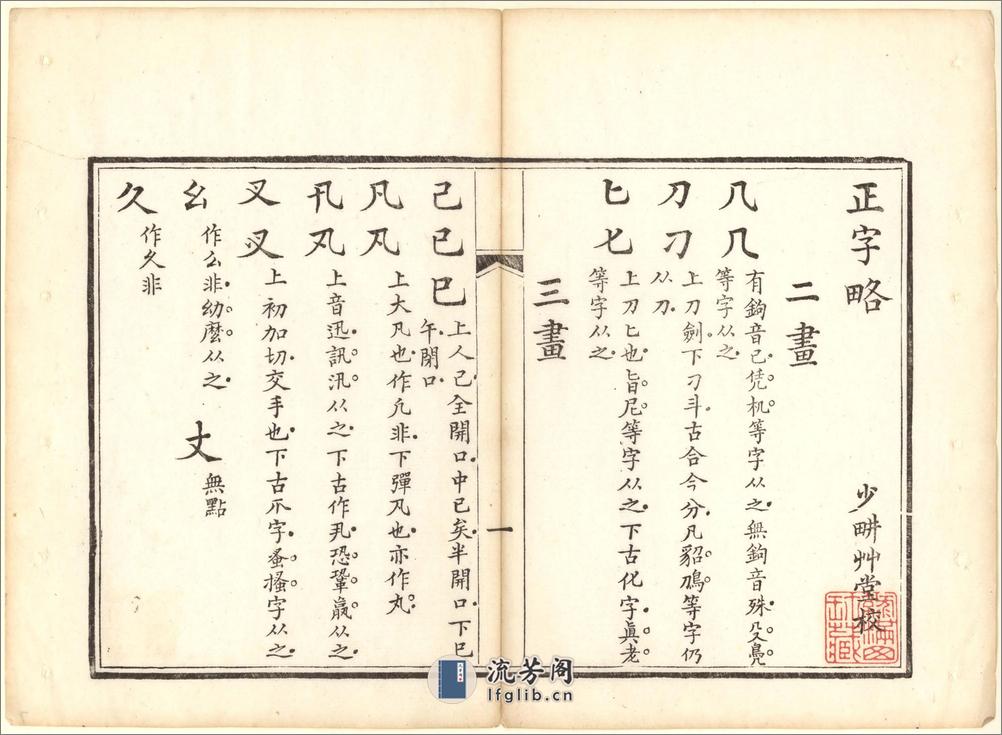 正字略
少畊艸堂校
二畫
几𠘧
有鉤音已凭机等字从之無鉤音殊殳鳧
等字从之
刀刁
上刀劍下刁斗古合今分凡貂鳭等字仍
从刀
匕𠤎
上刀匕也旨尼等字从之下古化字眞老
等字从之
三畫
一
己已巳
上人己全開口中已矣半開口下巳
午閉口
凡
上大凡也作凢非下彈也亦作丸
卂丮
上音迅訊汛从之下古作丮恐鞏从之
叉㕚
上初加切交手也下古爪字蚤搔字从之
幺
作么非幼麼从之
丈
無點
久
作乆非
流芳阁
lfglib.cn